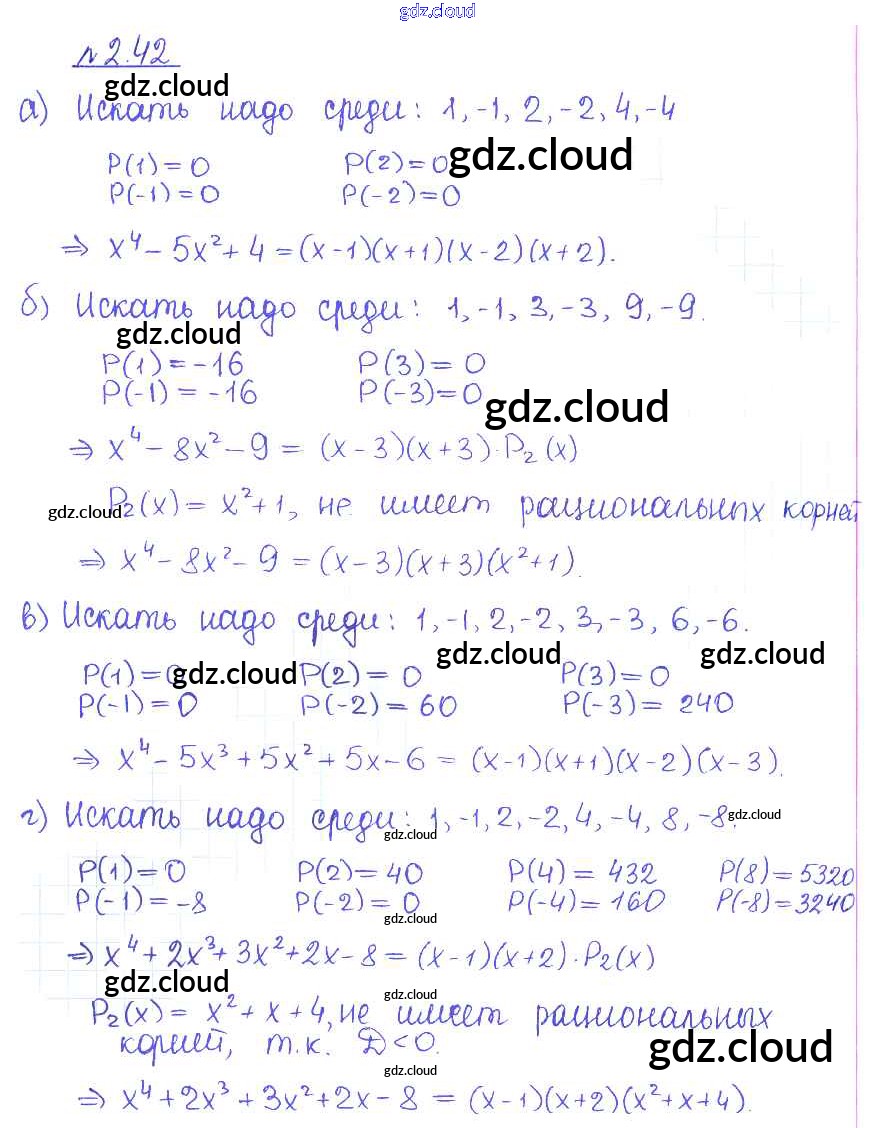 gdz.cloud
№2.42
gdz.cloud
а) Искать надо среди: 1, -1, 2, -2, 4, -4
P(1) = 0 P(2) = 0 gdz.cloud
P(-1) = 0 P(-2) = 0
⇒ x⁴ - 5x² + 4 = (x-1)(x+1)(x-2)(x+2).
б) Искать надо среди: 1, -1, 3, -3, 9, -9.
gdz.cloud
P(1) = -16 P(3) = 0
P(-1) = -16 P(-3) = 0 gdz.cloud
⇒ x⁴ - 8x² - 9 = (x-3)(x+3)·P₂(x)
gdz.cloud P₂(x) = x²+1, не имеет рациональных корней
⇒ x⁴ - 8x² - 9 = (x-3)(x+3)(x²+1).
в) Искать надо среди: 1, -1, 2, -2, 3, -3, 6, -6.
gdz.cloud gdz.cloud
P(1) = 0 gdz.cloud P(2) = 0 P(3) = 0
P(-1) = 0 P(-2) = 60 P(-3) = 240
⇒ x⁴ - 5x³ + 5x² + 5x - 6 = (x-1)(x+1)(x-2)(x-3).
г) Искать надо среди: 1, -1, 2, -2, 4, -4, 8, -8. gdz.cloud
gdz.cloud
P(1) = 0 P(2) = 40 P(4) = 432 P(8) = 5320
P(-1) = -8 P(-2) = 0 P(-4) = 160 P(-8) = 3240
gdz.cloud
⇒ x⁴ + 2x³ + 3x² + 2x - 8 = (x-1)(x+2)·P₂(x)
gdz.cloud gdz.cloud
P₂(x) = x² + x + 4, не имеет рациональных
корней, т.к. D<0. gdz.cloud
gdz.cloud
⇒ x⁴ + 2x³ + 3x² + 2x - 8 = (x-1)(x+2)(x²+x+4).